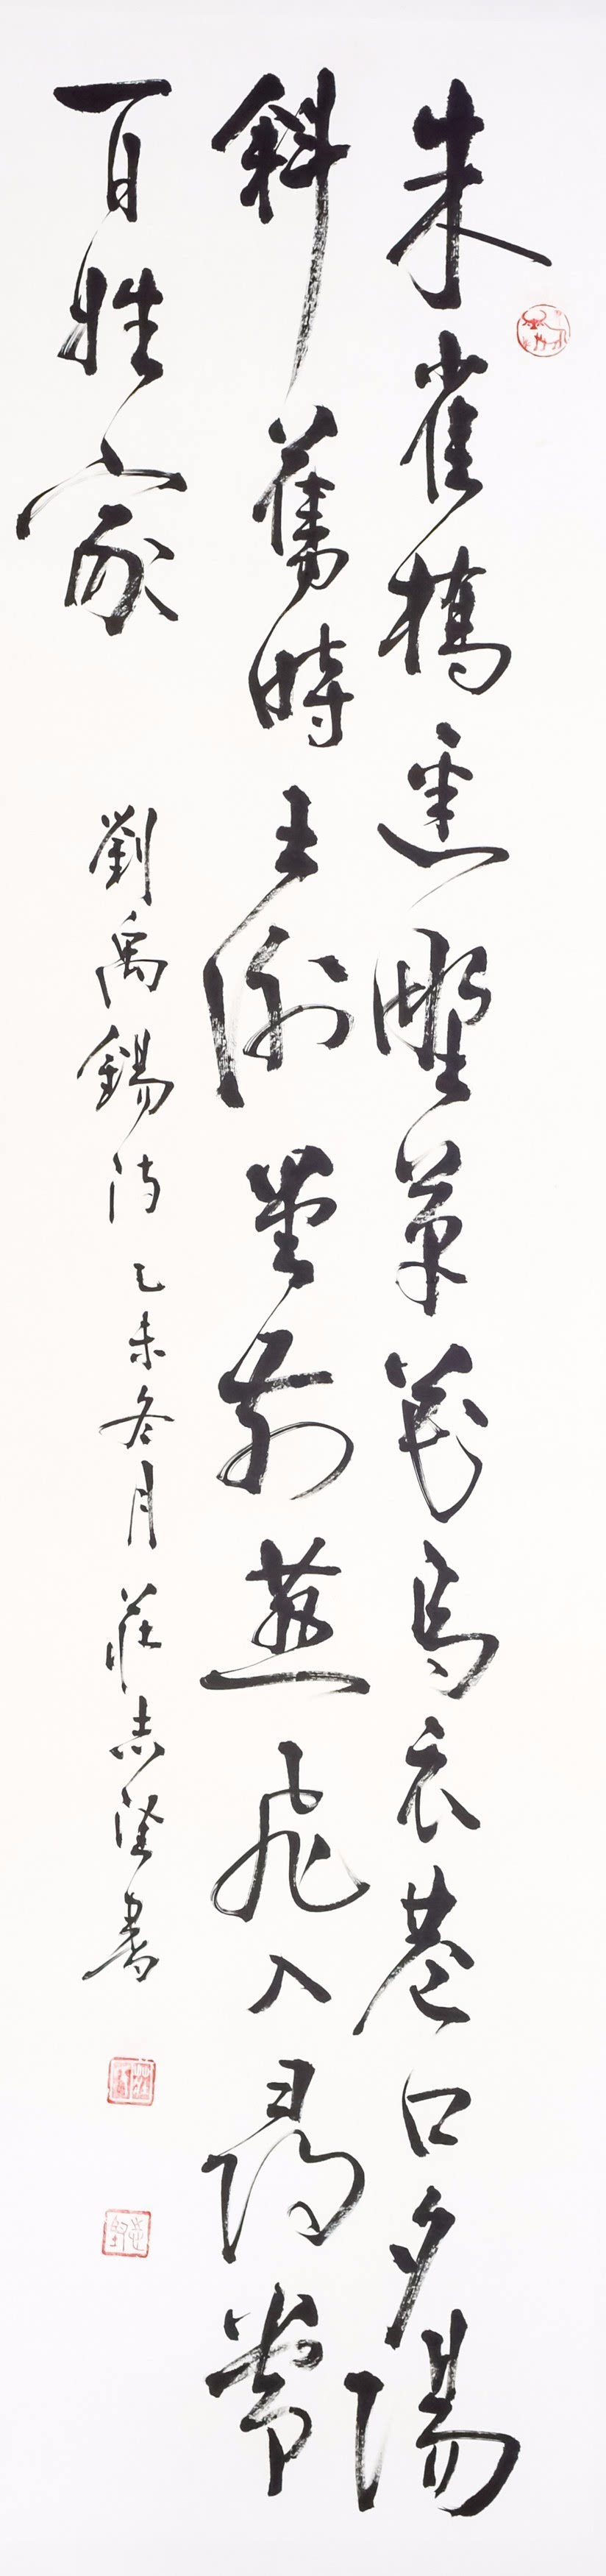 朱雀橋邊野草花烏衣巷口夕陽
斜舊時王謝堂前燕飛入尋常
百姓家 劉禹錫詩 乙未冬月 莊志書